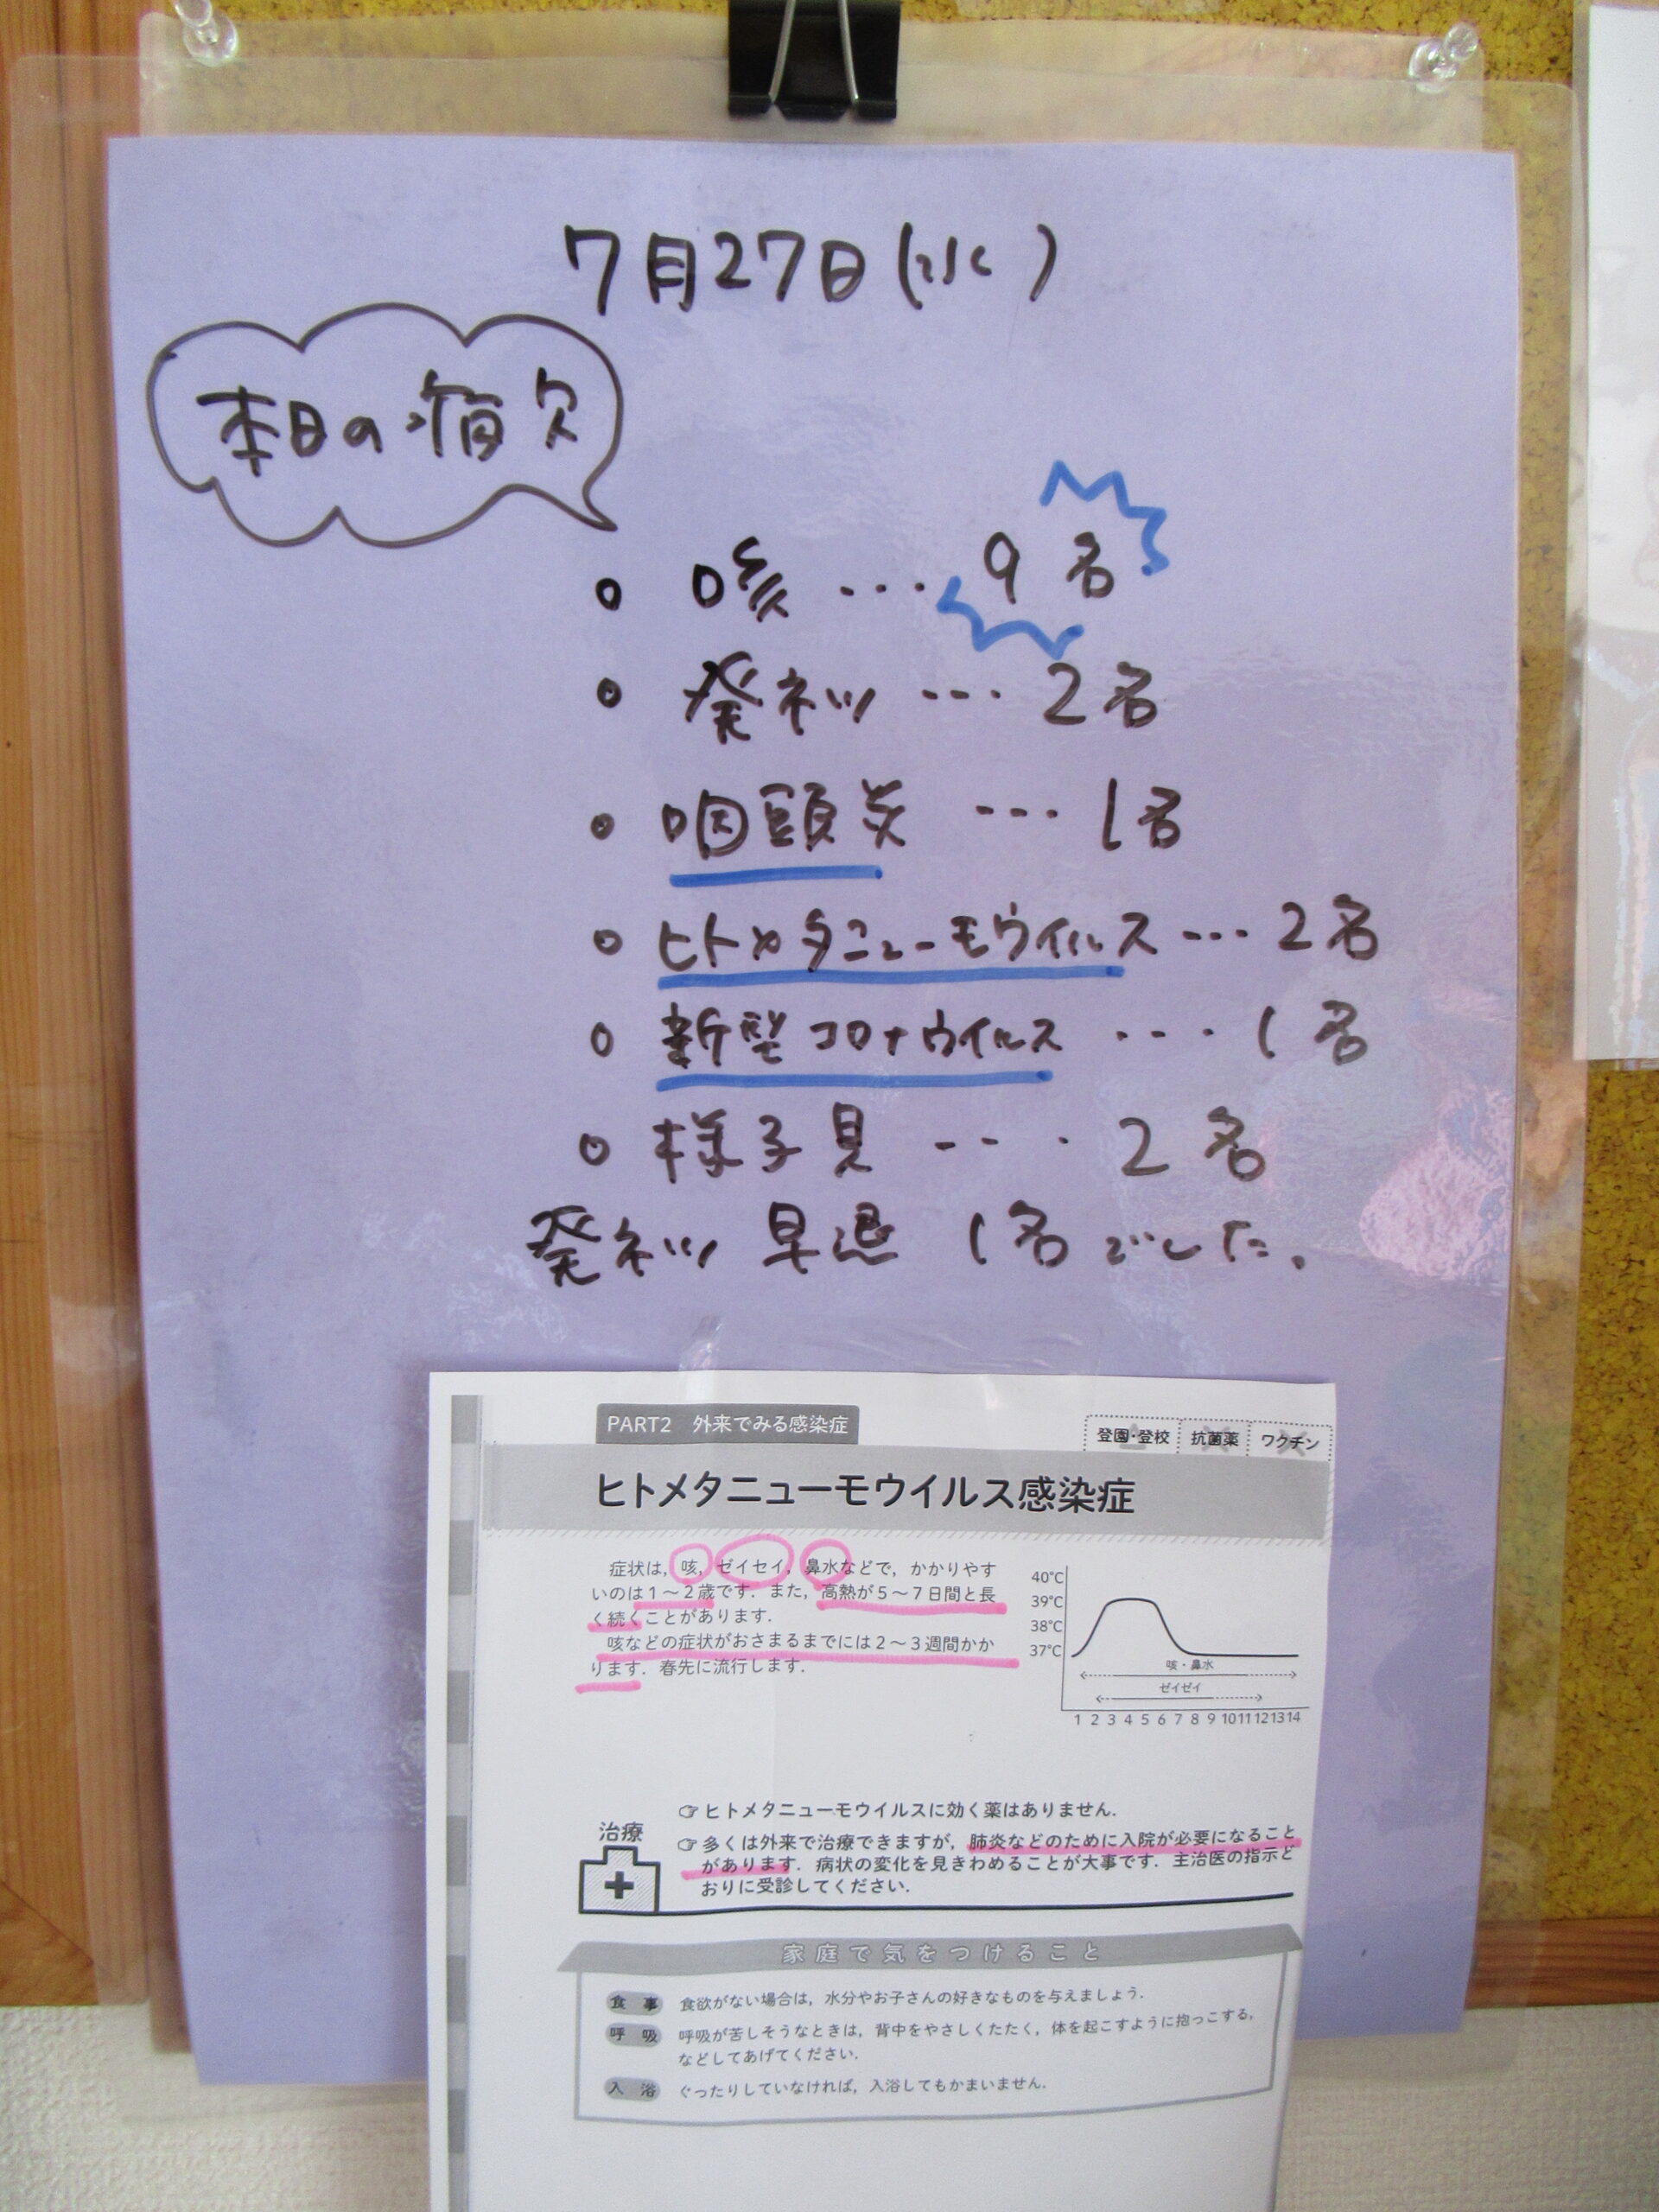 7月27日(水)
本日の病欠
○ 咳 … 9名
○ 発ネツ … 2名
○ 咽頭炎 … 1名
○ ヒトメタニューモウイルス … 2名
○ 新型コロナウイルス … 1名
○ 様子見 … 2名
発ネツ 早退 1名でした。
PART2 外来でみる感染症
登園・登校 抗菌薬 ワクチン
ヒトメタニューモウイルス感染症
症状は,咳,ゼイゼイ,鼻水などで,かかりやす
いのは1〜2歳です.また,高熱が5〜7日間と長
く続くことがあります.
咳などの症状がおさまるまでには2〜3週間かか
ります.春先に流行します.
40℃
39℃
38℃
37℃
咳・鼻水
ゼイゼイ
1 2 3 4 5 6 7 8 9 10 11 12 13 14
治療
☞ ヒトメタニューモウイルスに効く薬はありません.
☞ 多くは外来で治療できますが,肺炎などのために入院が必要になること
があります.病状の変化を見きわめることが大事です.主治医の指示ど
おりに受診してください.
家庭で気をつけること
食事 食欲がない場合は,水分やお子さんの好きなものを与えましょう.
呼吸 呼吸が苦しそうなときは,背中をやさしくたたく,体を起こすように抱っこする,
などしてあげてください.
入浴 ぐったりしていなければ,入浴してもかまいません.